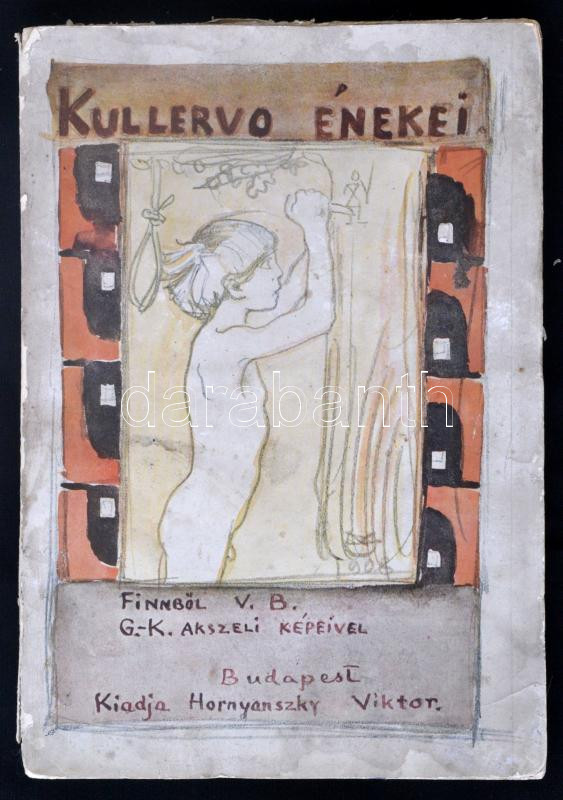 KULLERVO ÉNEKEI
darabanth
1908
FINNBÖL V. B.
G.-K. AKSZELI KÉPEIVEL
Budapest
Kiadja Hornyanszky Viktor.